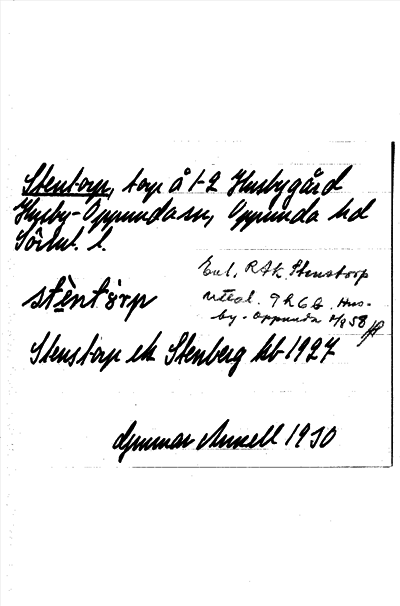 Stentorp, torp å 1-2 Husbygård
Husby-Oppunda sn, Oppunda hd
Södml. l.
Enl. RAK. Stenstorp
uttal.
Husby-Oppunda 58
stèntòrp
Stenstorp ek Stenberg kb 1927
Gunnar 1930